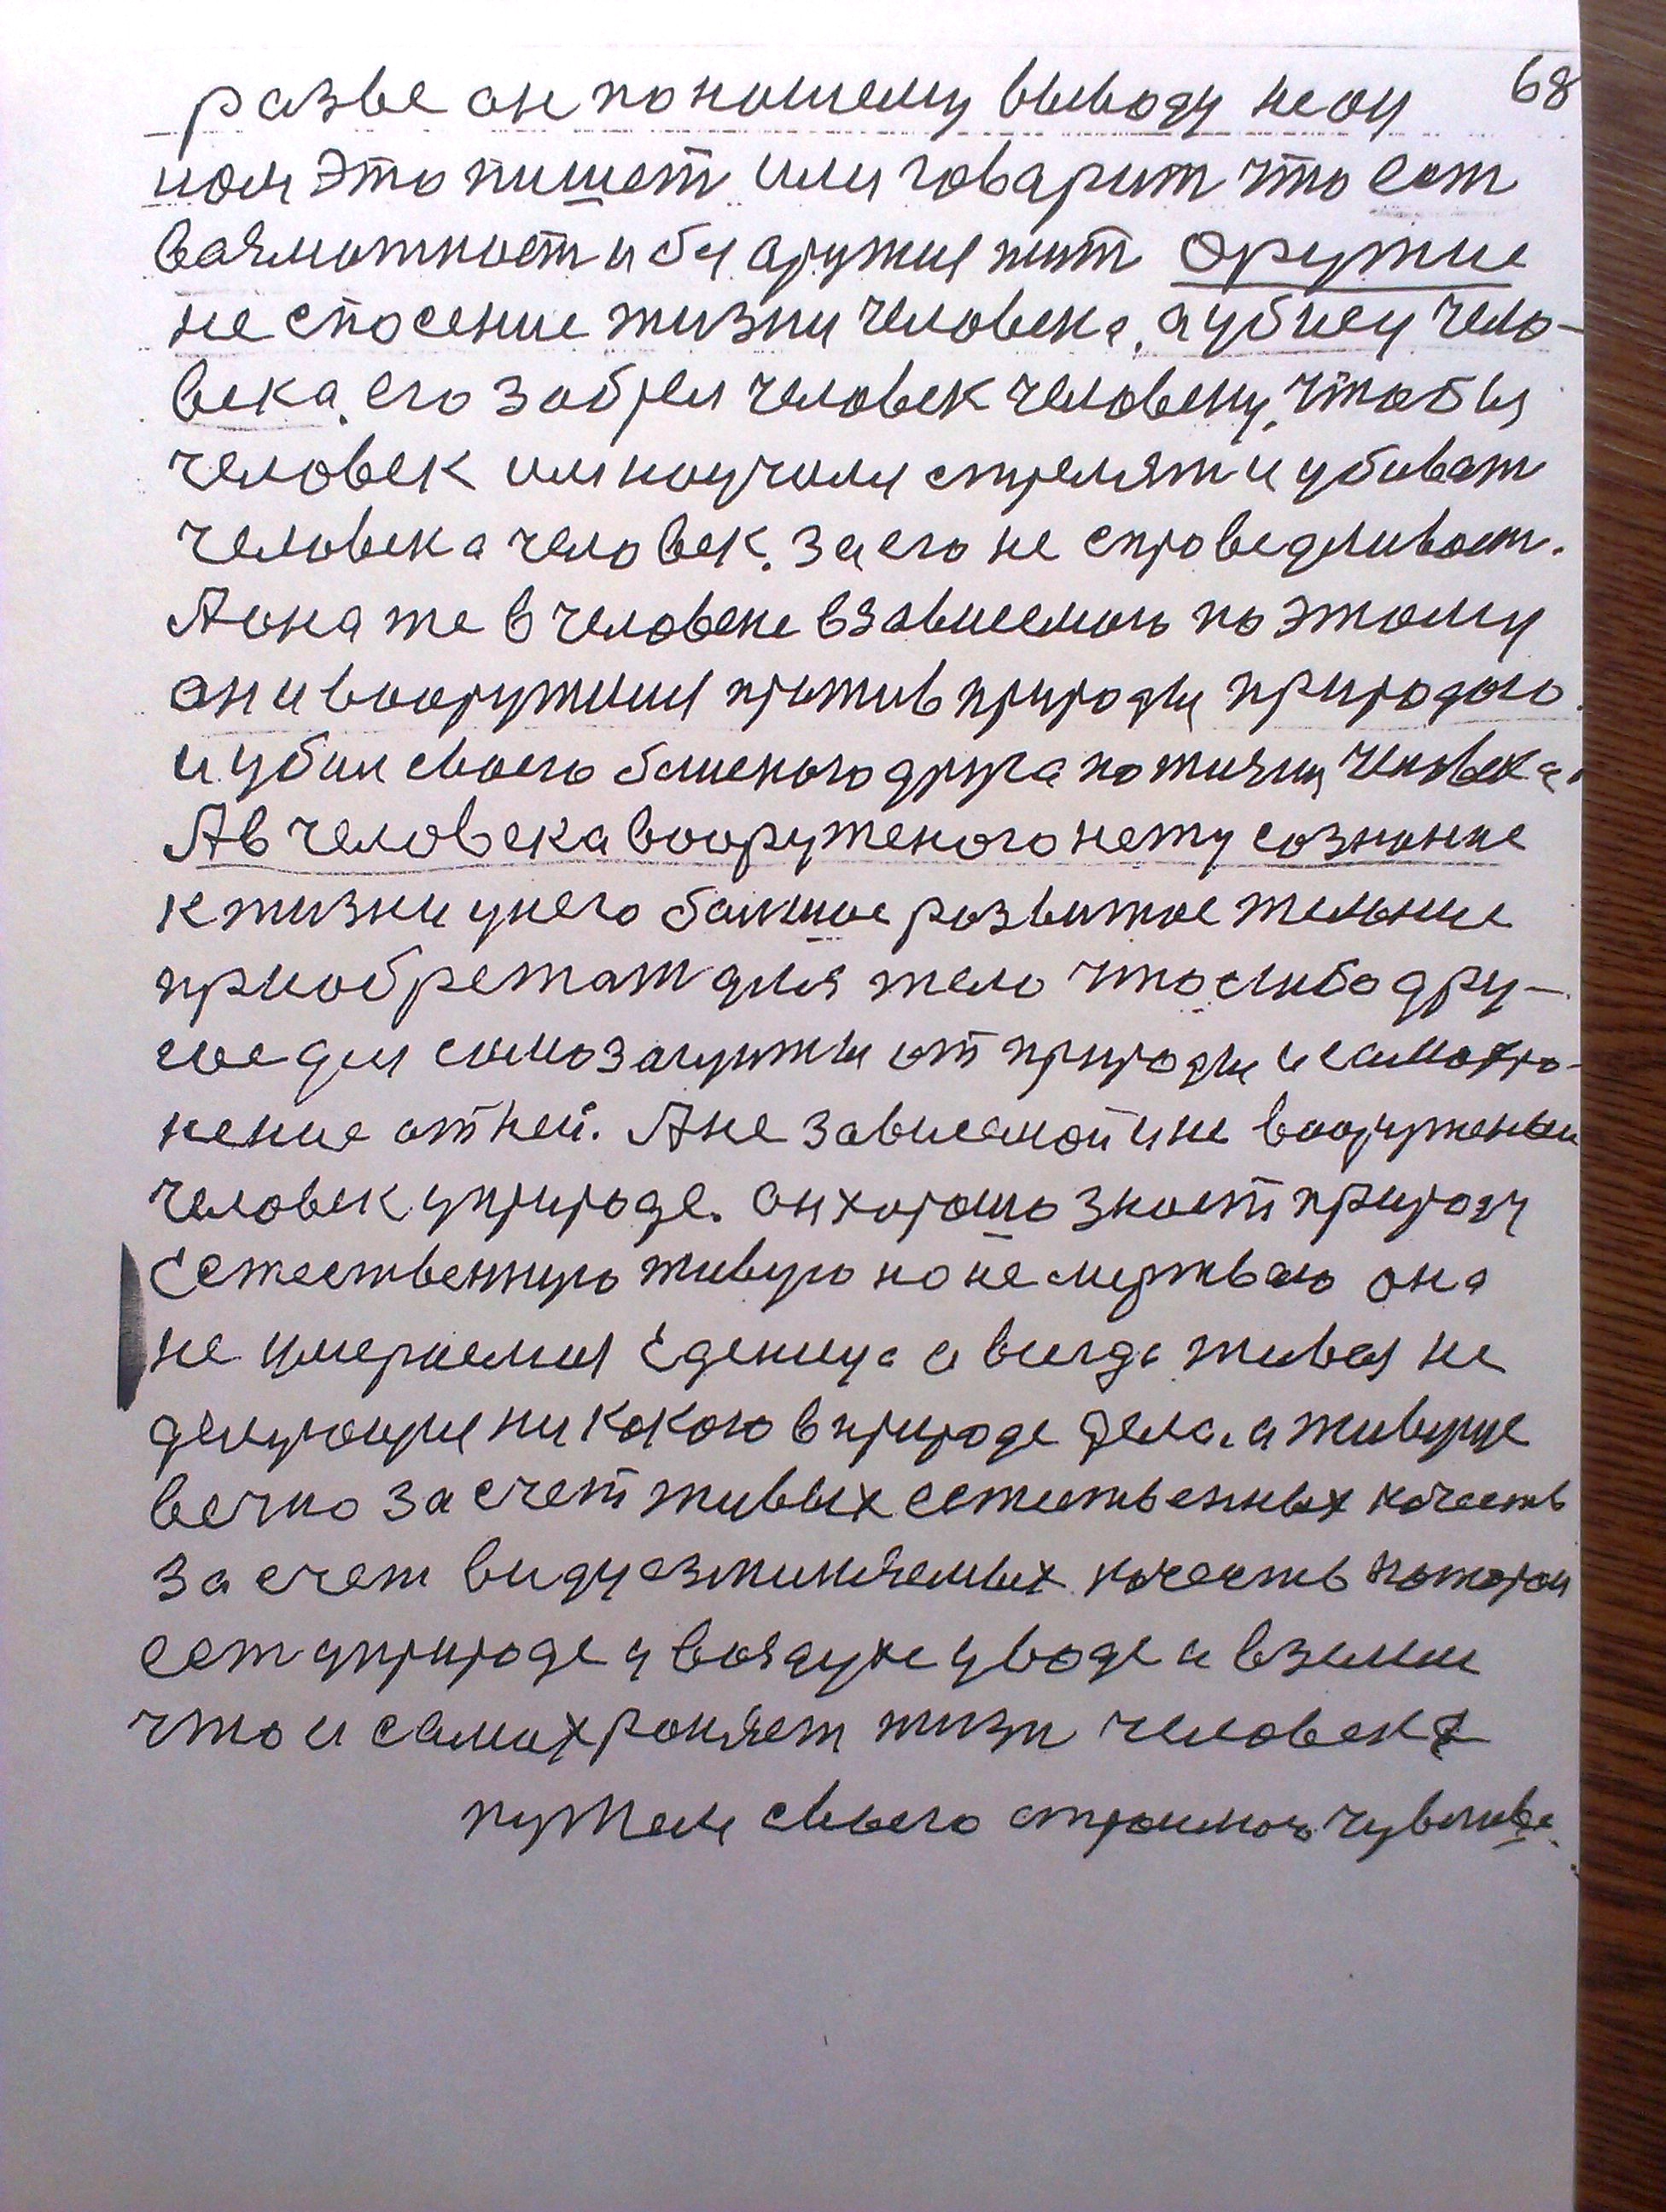 68
разве он по нашему выводу не он
нам это пишет или говарит что ест
ваямотност и бя аружия жит оружие
не спосение жизни человека, а убису чело-
века. его забрел человек человеку, чтобы
человек им научили стрелят и убиват
человека человек. за его не справедливост.
А она же в человеке взависемось по этому
он и вооружился против природы природою.
и убил своего близкого друга по жизни человека.
Ав человека вооруженого нету сознание
к жизни у него большое развитое желание
приобретат для тело что либо дру-
гое для самозащиты от природы и самохро-
нение от ней. А не зависемой и не вооруженый
человек у природе. он хорошо знает природу
Естественную живую но не мертваю она
не умераемая Еденица а всегда живая не
делующие ни какого в природе дела. а живущие
вечно за счет живых естественных качеств
за счет видуазминяемых качеств которои
ест у природе у воздухе у воде и в земли
что и самохроняет жизн человека
путем своего строимось чувства.